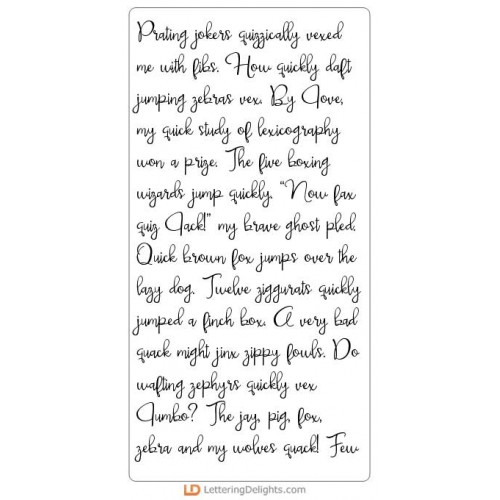 Prating jokers quizzically vexed
me with fibs. How quickly daft
jumping zebras vex. By Jove,
my quick study of lexicography
won a prize. The five boxing
wizards jump quickly. "Now fax
quiz Jack!" my brave ghost pled.
Quick brown fox jumps over the
lazy dog. Twelve ziggurats quickly
jumped a finch box. A very bad
quack might jinx zippy fowls. Do
wafting zephyrs quickly vex
Jumbo? The jay, pig, fox,
zebra and my wolves quack! Few
LD LetteringDelights.com